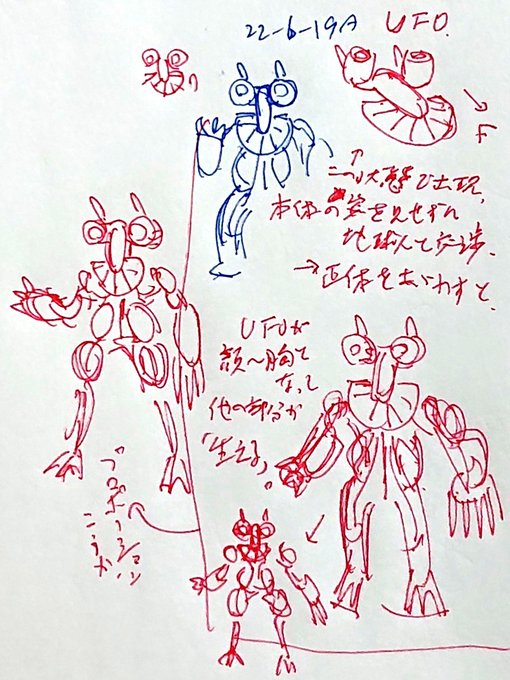 22-6-19A
UFO.
F
この状態で出現、
本体の姿を見せずに
地球人と交渉。
→正体をあらわすと、
UFOが
顔〜胸と
なって
他の部分が
「生える」。
プロポーション
こうか